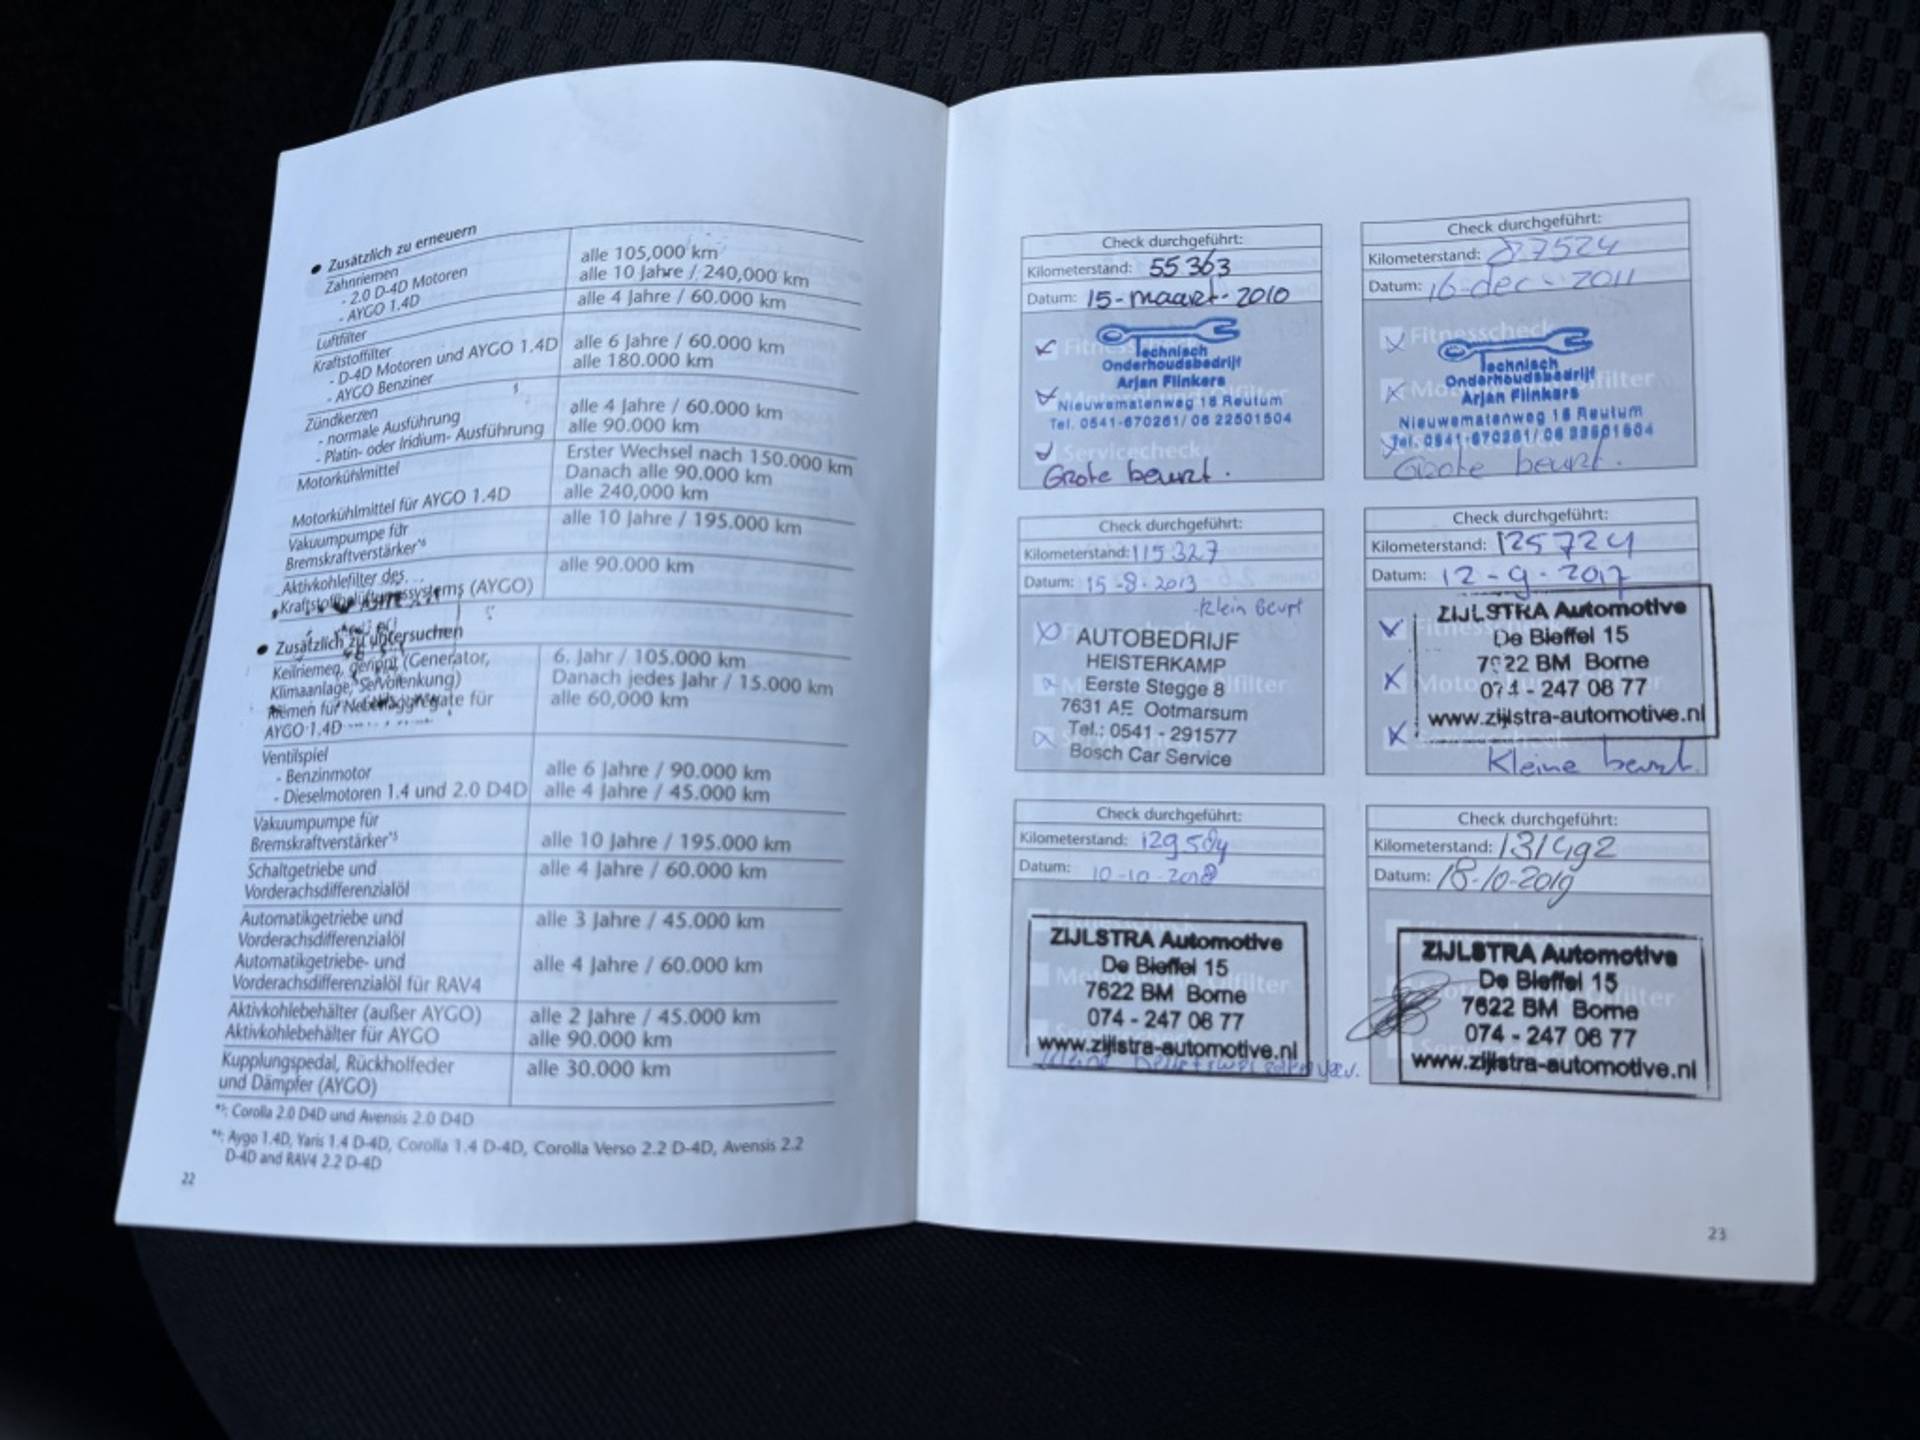 ● Zusätzlich zu erneuern
Zahnriemen
- 2.0 D-4D Motoren alle 105,000 km
- AYGO 1.4D alle 10 Jahre / 240,000 km
Luftfilter alle 4 Jahre / 60.000 km
Kraftstoffilter
- D-4D Motoren und AYGO 1.4D alle 6 Jahre / 60.000 km
- AYGO Benziner alle 180.000 km
Zündkerzen
- normale Ausführung alle 4 Jahre / 60.000 km
- Platin- oder Iridium- Ausführung alle 90.000 km
Motorkühlmittel Erster Wechsel nach 150.000 km
Danach alle 90.000 km
Motorkühlmittel für AYGO 1.4D alle 240,000 km
Vakuumpumpe für
Bremskraftverstärker*6 alle 10 Jahre / 195.000 km
Aktivkohlefilter des
Kraftstoffbelüftungssystems (AYGO) alle 90.000 km
● Zusätzlich zu untersuchen
Keilriemen, gerippt (Generator, 6. Jahr / 105.000 km
Klimaanlage, Servolenkung) Danach jedes Jahr / 15.000 km
Riemen für Nebenaggregate für alle 60,000 km
AYGO 1.4D
Ventilspiel
- Benzinmotor alle 6 Jahre / 90.000 km
- Dieselmotoren 1.4 und 2.0 D4D alle 4 Jahre / 45.000 km
Vakuumpumpe für
Bremskraftverstärker*5 alle 10 Jahre / 195.000 km
Schaltgetriebe und alle 4 Jahre / 60.000 km
Vorderachsdifferenzialöl
Automatikgetriebe und alle 3 Jahre / 45.000 km
Vorderachsdifferenzialöl
Automatikgetriebe- und alle 4 Jahre / 60.000 km
Vorderachsdifferenzialöl für RAV4
Aktivkohlebehälter (außer AYGO) alle 2 Jahre / 45.000 km
Aktivkohlebehälter für AYGO alle 90.000 km
Kupplungspedal, Rückholfeder alle 30.000 km
und Dämpfer (AYGO)
Corolla 2.0 D4D und Avensis 2.0 D4D
Aygo 1.4D, Yaris 1.4 D-4D, Corolla 1.4 D-4D, Corolla Verso 2.2 D-4D, Avensis 2.2
D-4D and RAV4 2.2 D-4D
22
Check durchgeführt:
Kilometerstand: 55363
Datum: 15-maart-2010
Technisch
Onderhoudsbedrijf
Arjan Flinkers
Nieuwematenweg 18 Reutum
Tel. 0541-670261/ 06 22501504
Servicecheck
Grote beurt.
Check durchgeführt:
Kilometerstand: 87524
Datum: 16-dec-2011
Fitnesscheck
Technisch
Onderhoudsbedrijf
Arjan Flinkers
Nieuwematenweg 18 Reutum
Tel. 0541-670261/ 06 22501504
Grote beurt.
Check durchgeführt:
Kilometerstand: 115327
Datum: 15-8-2013
Klein Beurt
AUTOBEDRIJF
HEISTERKAMP
Eerste Stegge 8
7631 AE Ootmarsum
Tel.: 0541 - 291577
Bosch Car Service
Check durchgeführt:
Kilometerstand: 125724
Datum: 12-9-2017
ZIJLSTRA Automotive
De Bieffel 15
7622 BM Borne
074 - 247 08 77
www.zijlstra-automotive.nl
Kleine beurt.
Check durchgeführt:
Kilometerstand: 129504
Datum: 10-10-2018
ZIJLSTRA Automotive
De Bieffel 15
7622 BM Borne
074 - 247 08 77
www.zijlstra-automotive.nl
Kleine
Check durchgeführt:
Kilometerstand: 131492
Datum: 18-10-2019
ZIJLSTRA Automotive
De Bieffel 15
7622 BM Borne
074 - 247 08 77
www.zijlstra-automotive.nl
23